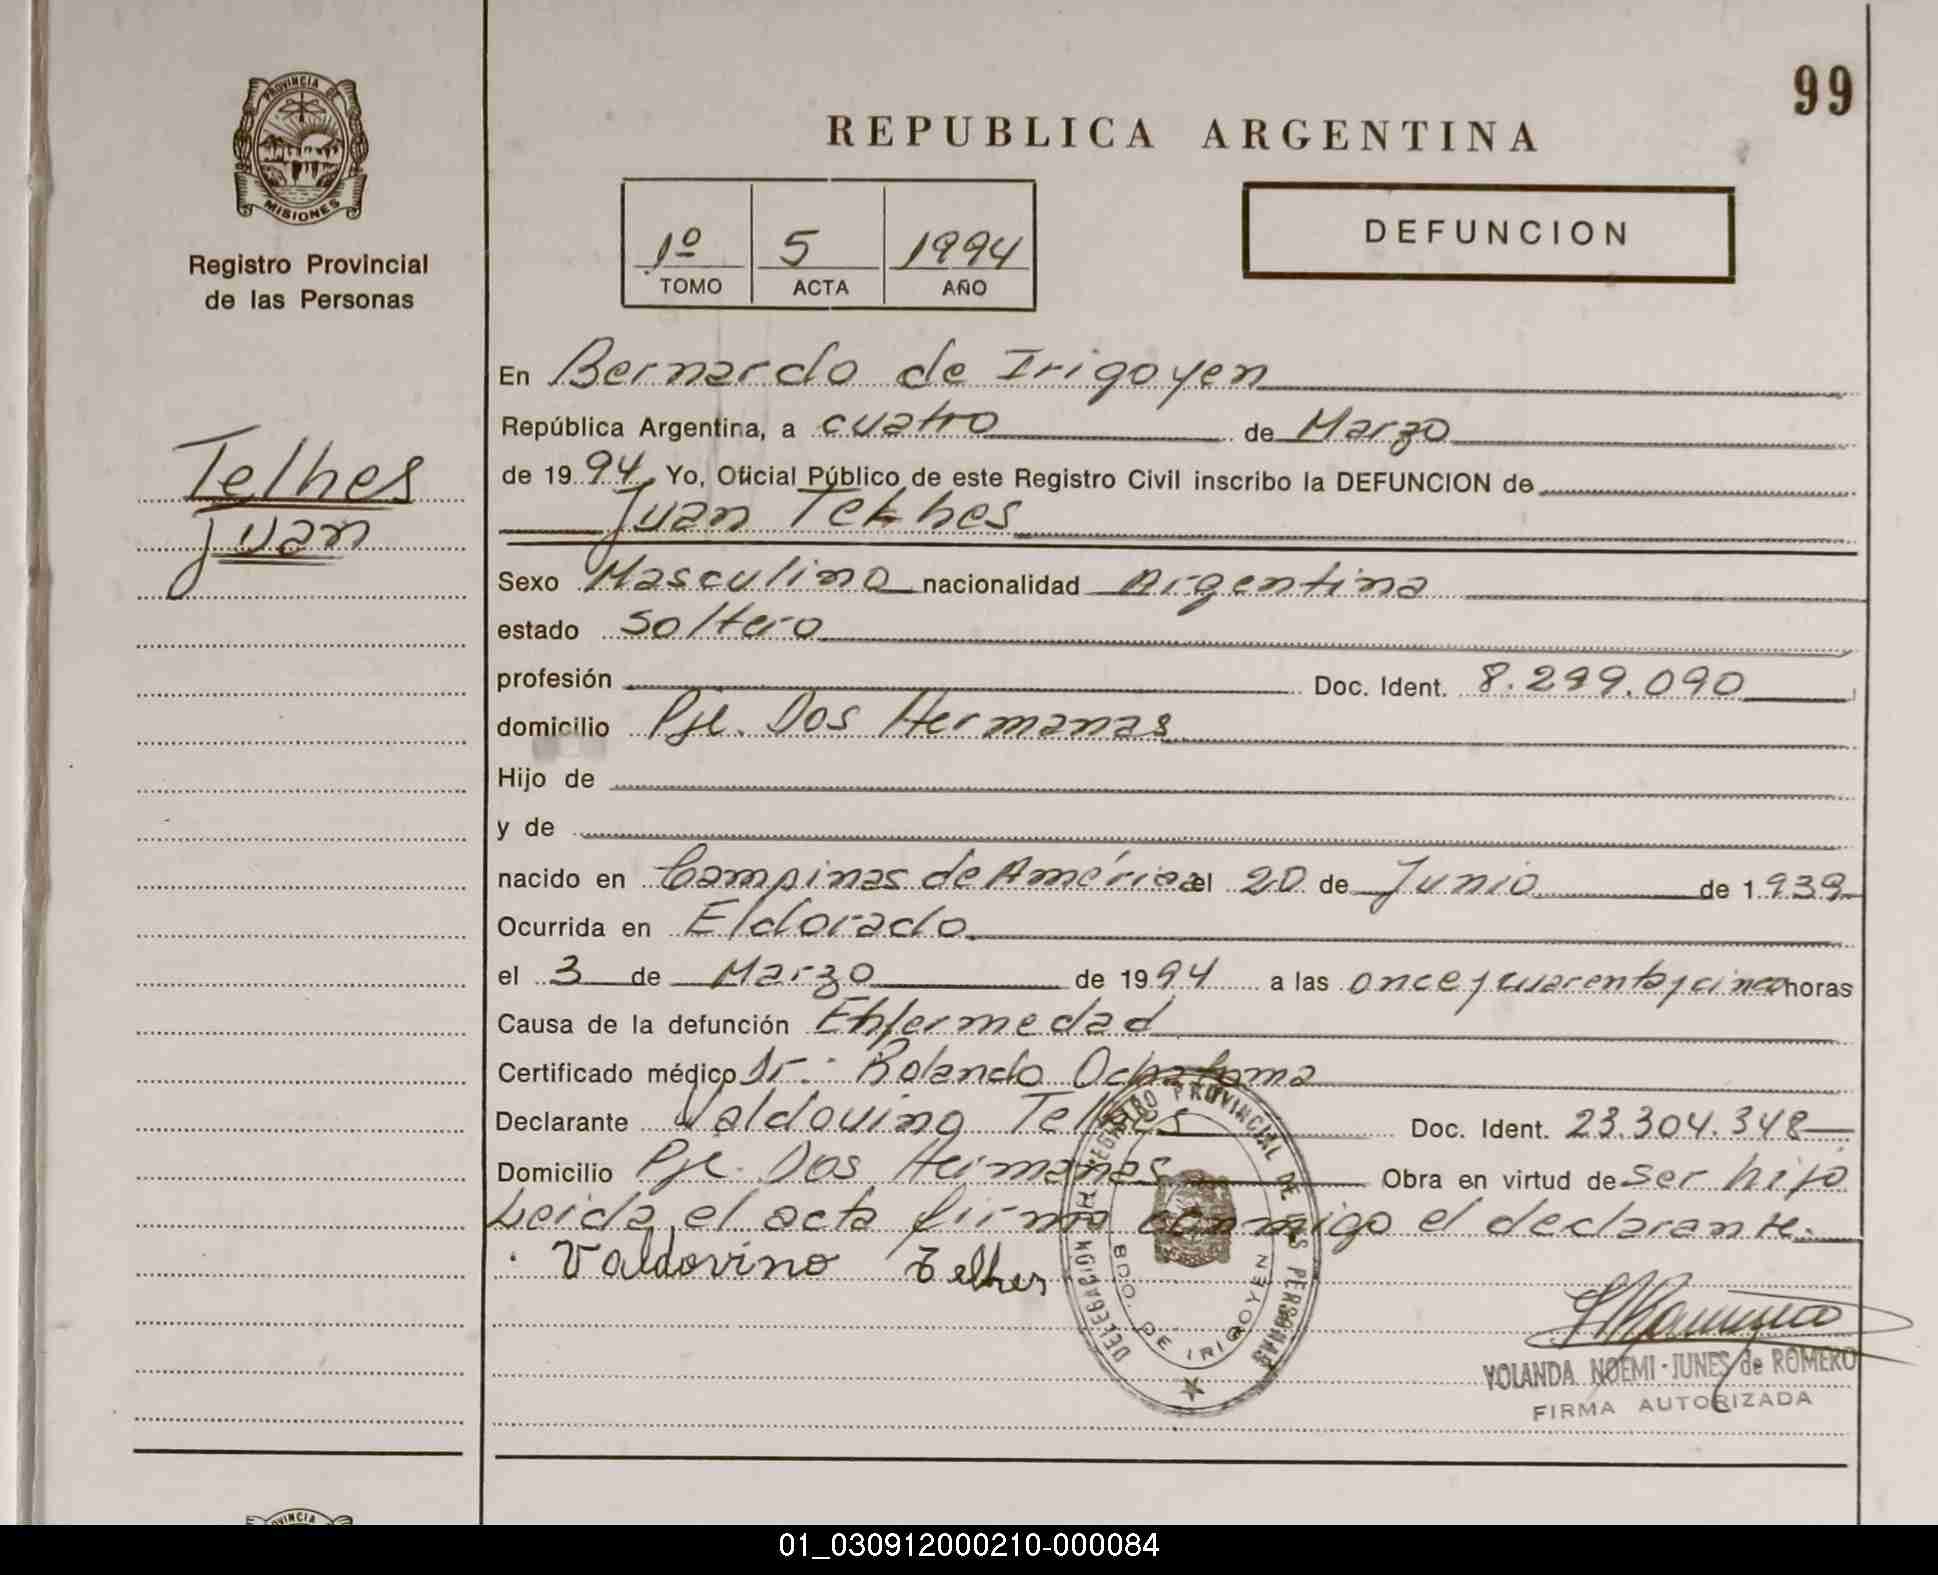 99
PROVINCIA DE
MISIONES
Registro Provincial
de las Personas
REPUBLICA ARGENTINA
1º 5 1994
TOMO ACTA AÑO
DEFUNCION
Telhes
Juan
En Bernardo de Irigoyen
República Argentina, a cuatro de Marzo
de 1994 Yo, Oficial Público de este Registro Civil inscribo la DEFUNCION de
Juan Telhes
Sexo Masculino nacionalidad Argentina
estado soltero
profesión Doc. Ident. 8.299.090
domicilio Pje. Dos Hermanas
Hijo de
y de
nacido en Campinas de América el 20 de Junio de 1939
Ocurrida en Eldorado
el 3 de Marzo de 1994 a las once y cuarenta y cinco horas
Causa de la defunción Enfermedad
Certificado médico Dr.: Rolando Ochatoma
Declarante Valdovino Telhes Doc. Ident. 23.304.348
Domicilio Pje. Dos Hermanas Obra en virtud de ser hijo
Leida el acta firma conmigo el declarante.
Valdovino Telhes
DELEGACION DEL REGISTRO PROVINCIAL DE LAS PERSONAS
BDO. DE IRIGOYEN
YOLANDA NOEMI JUNES de ROMERO
FIRMA AUTORIZADA
VINCIA
01_030912000210-000084